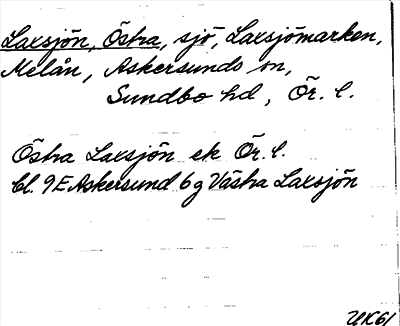 Laxsjön, Östra, sjö, Laxsjömarken,
Melån, Askersunds sn,
Sundbo hd, Ör. l.
Östra Laxsjön ek Ör. l.
bl. 9E Askersund 6g Västra Laxsjön
UK61